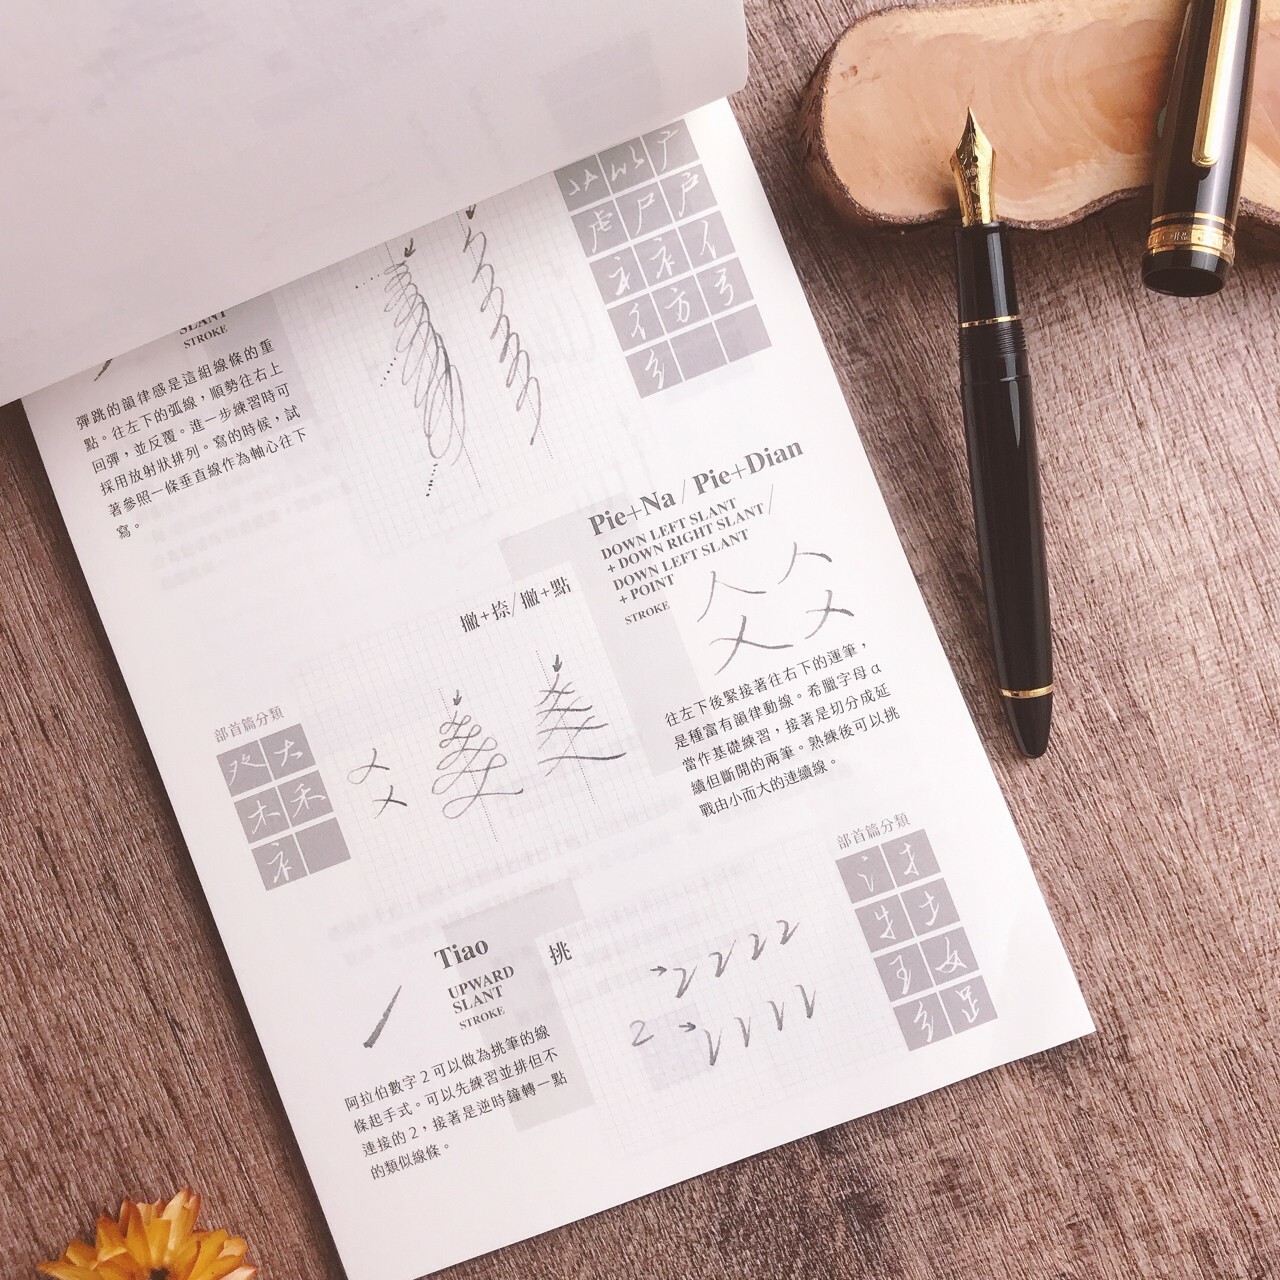 SLANT
STROKE
彈跳的韻律感是這組線條的重
點。往左下的弧線，順勢往右上
回彈，並反覆。進一步練習時可
採用放射狀排列。寫的時候，試
著參照一條垂直線作為軸心往下
寫。
虍 尸 戶
礻 衤 亻
彳 方 弓
糹
Pie+Na / Pie+Dian
DOWN LEFT SLANT
+ DOWN RIGHT SLANT /
DOWN LEFT SLANT
+ POINT
STROKE
撇+捺/撇+點
往左下後緊接著往右下的運筆，
是種富有韻律動線。希臘字母 α
當作基礎練習，接著是切分成延
續但斷開的兩筆。熟練後可以挑
戰由小而大的連續線。
部首篇分類
癶 大
木 禾
衤
部首篇分類
氵 扌
牛 土
王 女
糹 足
Tiao
挑
UPWARD
SLANT
STROKE
阿拉伯數字 2 可以做為挑筆的線
條起手式。可以先練習並排但不
連接的 2，接著是逆時鐘轉一點
的類似線條。
2 2 2 2
2